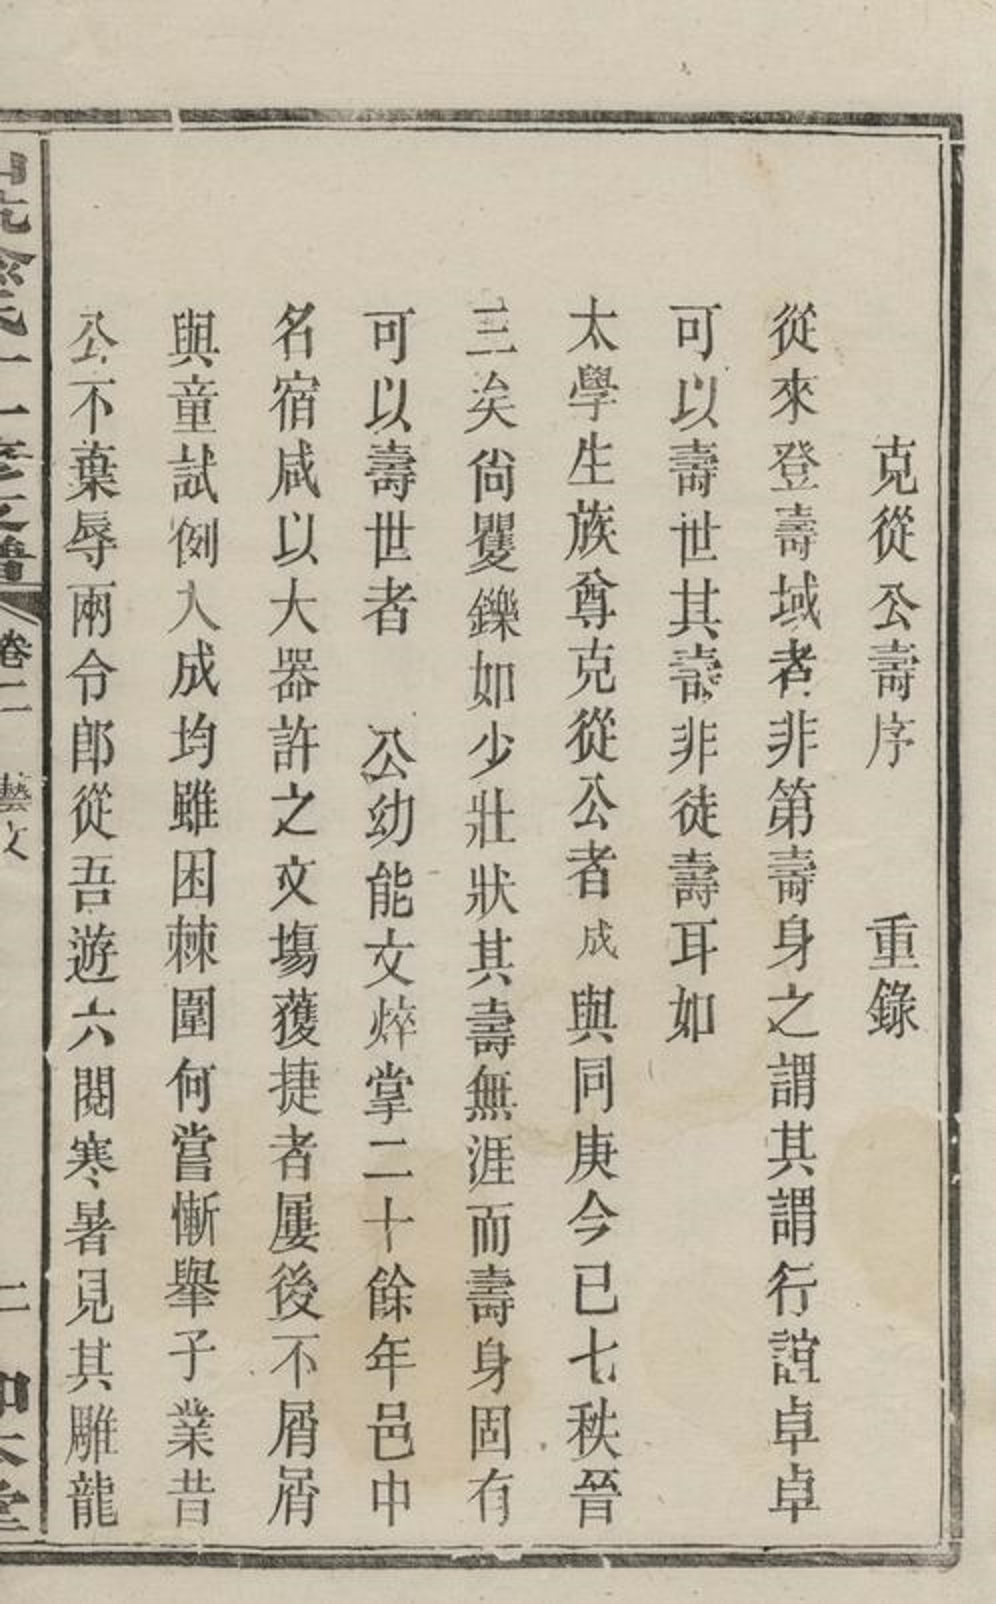 克從公壽序 重錄
從來登壽域者非第壽身之謂其謂行誼卓卓
可以壽世其壽非徒壽耳如
太學生族尊克從公者成與同庚今已七秩晉
三矣尙矍鑠如少壯狀其壽無涯而壽身固有
可以壽世者 公幼能文焠掌二十餘年邑中
名宿咸以大器許之文塲獲捷者屢後不屑屑
與童試例入成均雖困棘圍何嘗慚舉子業昔
公不葉辱兩令郎從吾遊六閱寒暑見其雕龍
氏十一修支譜 卷二 藝文 二